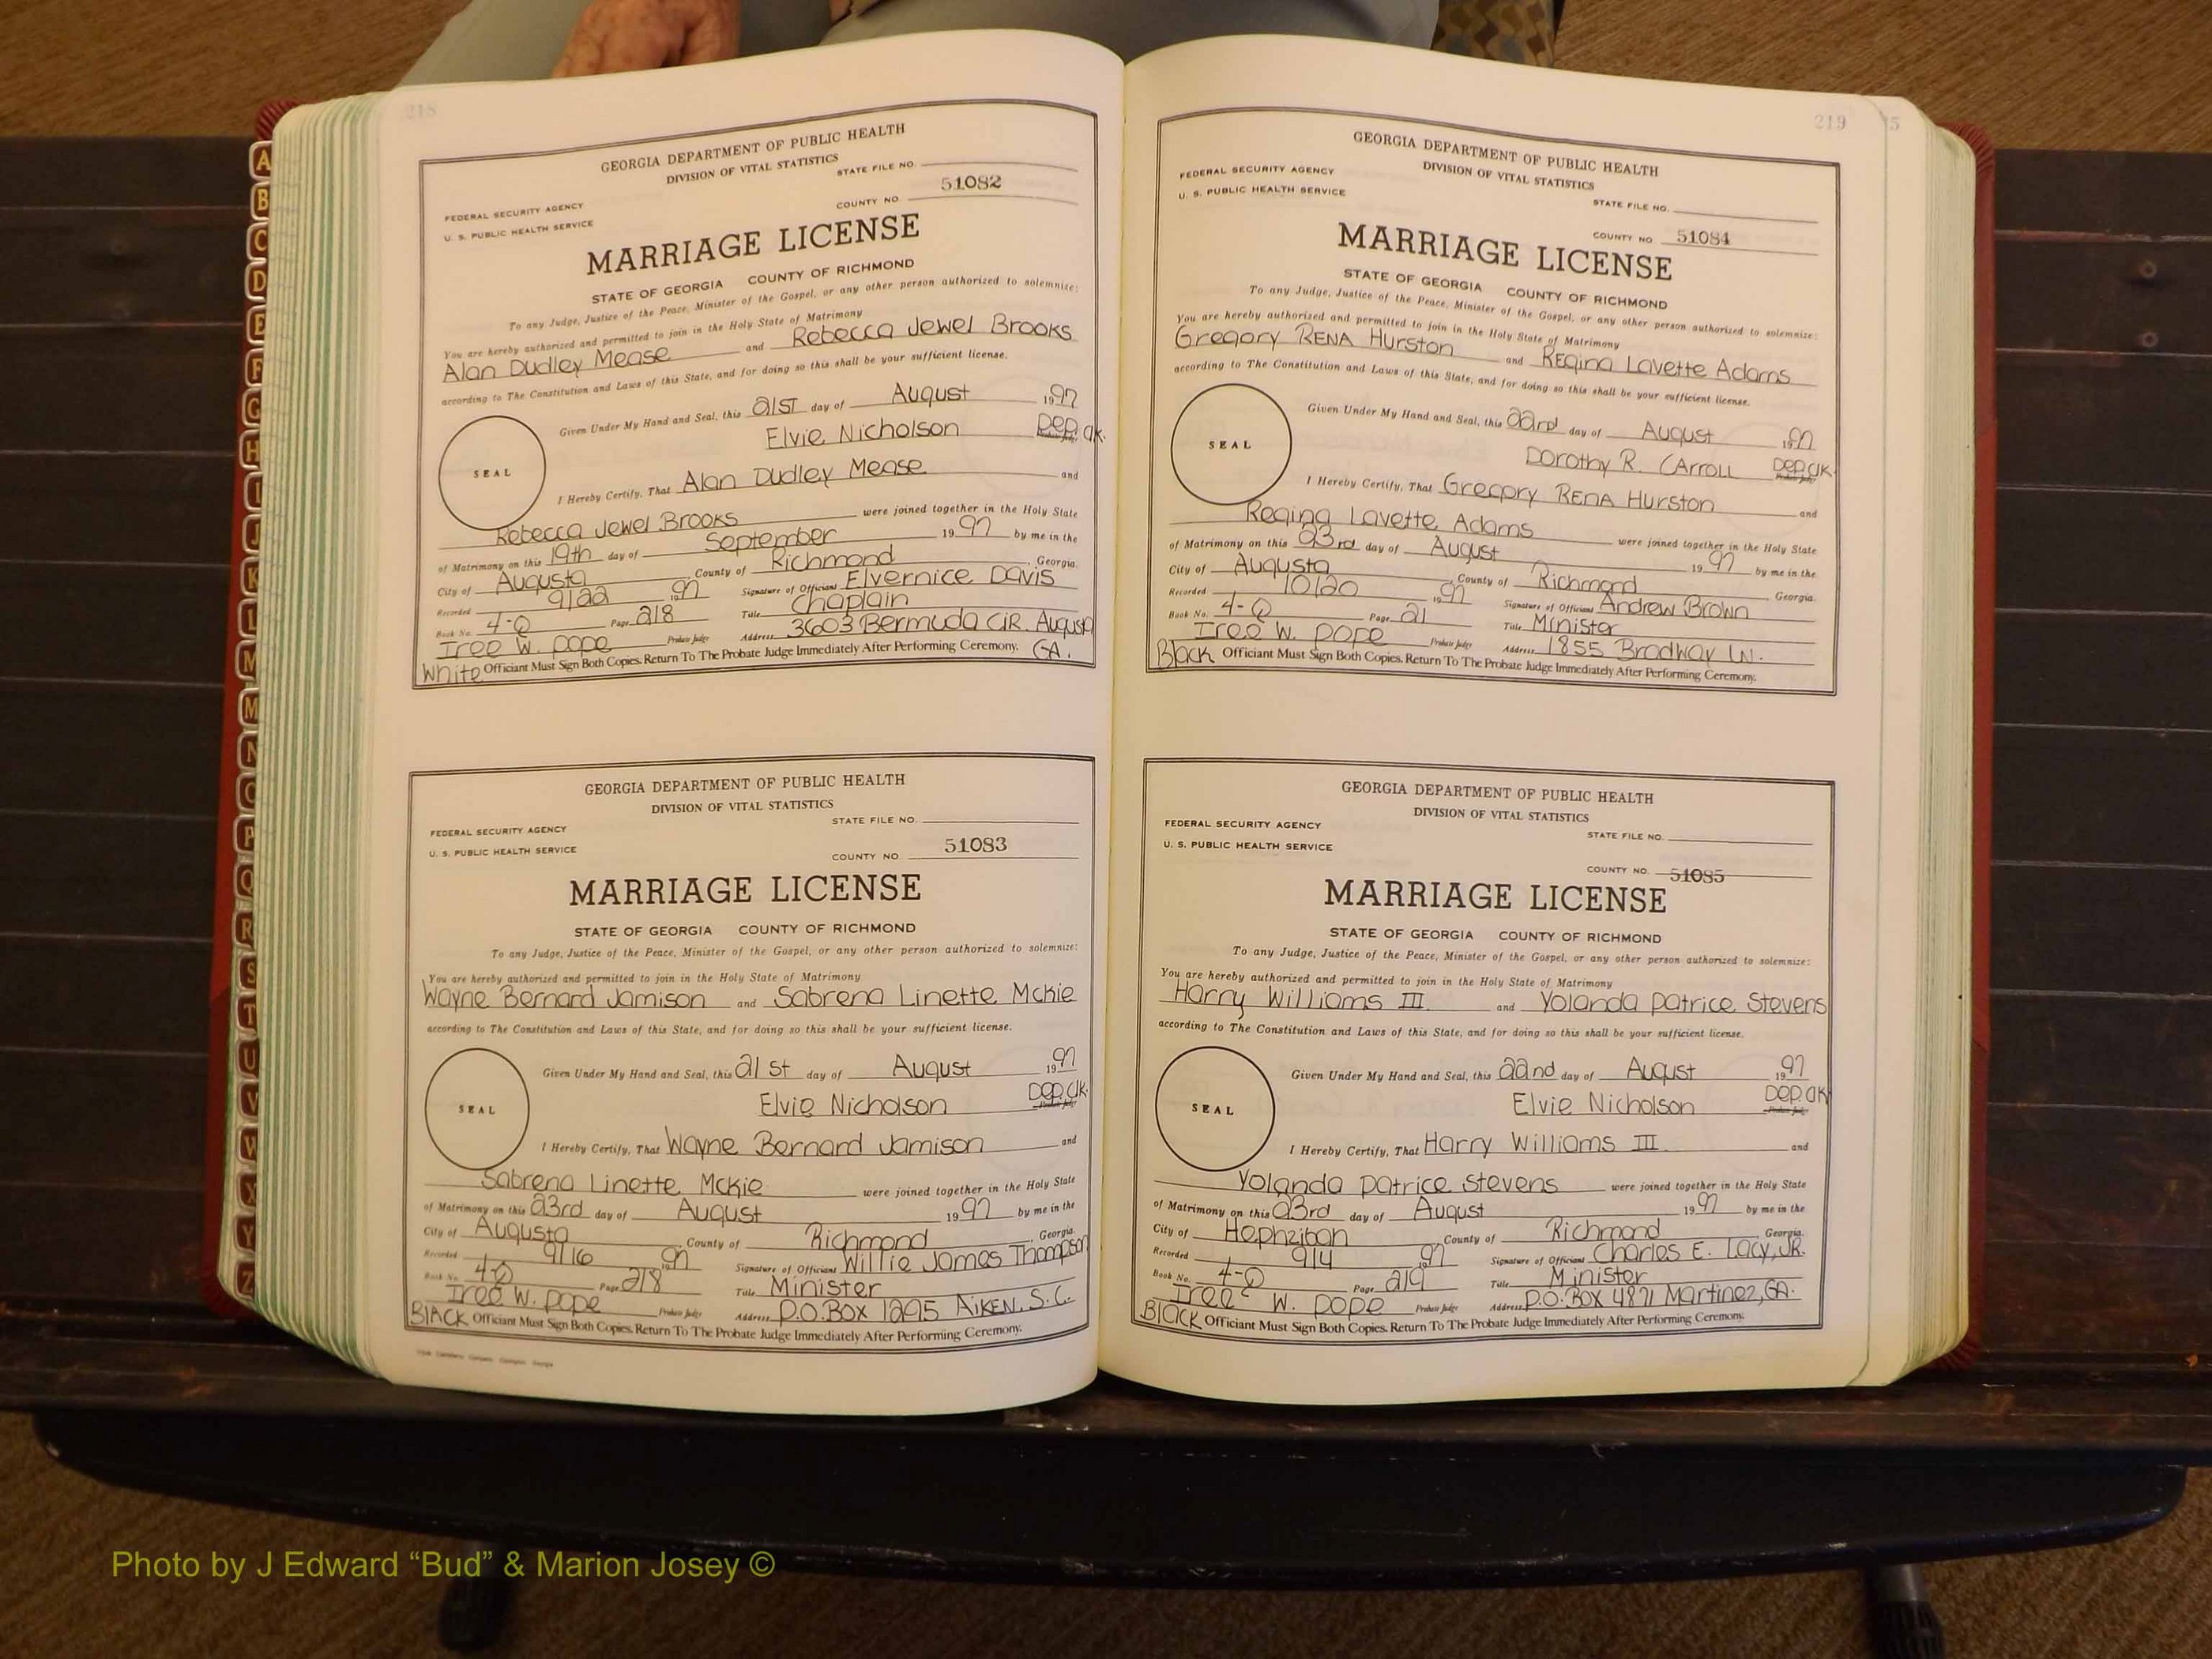 218
GEORGIA DEPARTMENT OF PUBLIC HEALTH
DIVISION OF VITAL STATISTICS
STATE FILE NO.
FEDERAL SECURITY AGENCY
U. S. PUBLIC HEALTH SERVICE
COUNTY NO. 51082
MARRIAGE LICENSE
STATE OF GEORGIA COUNTY OF RICHMOND
To any Judge, Justice of the Peace, Minister of the Gospel, or any other person authorized to solemnize:
You are hereby authorized and permitted to join in the Holy State of Matrimony
Alan Dudley Mease and Rebecca Jewel Brooks
according to The Constitution and Laws of this State, and for doing so this shall be your sufficient license.
Given Under My Hand and Seal, this 21st day of August 1997
Elvie Nicholson Dep. Clk.
Probate Judge
SEAL
I Hereby Certify, That Alan Dudley Mease and
Rebecca Jewel Brooks were joined together in the Holy State
of Matrimony on this 19th day of September 1997 by me in the
City of Augusta, County of Richmond, Georgia.
Recorded 9/22 1997 Signature of Officiant Elvernice Davis
Book No. 4-Q Page 218 Title Chaplain
Iree W. Pope Probate Judge Address 3603 Bermuda Cir. Augusta
GA.
White Officiant Must Sign Both Copies. Return To The Probate Judge Immediately After Performing Ceremony.
GEORGIA DEPARTMENT OF PUBLIC HEALTH
DIVISION OF VITAL STATISTICS
STATE FILE NO.
FEDERAL SECURITY AGENCY
U. S. PUBLIC HEALTH SERVICE
COUNTY NO. 51083
MARRIAGE LICENSE
STATE OF GEORGIA COUNTY OF RICHMOND
To any Judge, Justice of the Peace, Minister of the Gospel, or any other person authorized to solemnize:
You are hereby authorized and permitted to join in the Holy State of Matrimony
Wayne Bernard Jamison and Sabrena Linette McKie
according to The Constitution and Laws of this State, and for doing so this shall be your sufficient license.
Given Under My Hand and Seal, this 21st day of August 1997
Elvie Nicholson Dep. Clk.
Probate Judge
SEAL
I Hereby Certify, That Wayne Bernard Jamison and
Sabrena Linette McKie were joined together in the Holy State
of Matrimony on this 23rd day of August 1997 by me in the
City of Augusta, County of Richmond, Georgia.
Recorded 9/16 1997 Signature of Officiant Willie James Thompson
Book No. 4-Q Page 218 Title Minister
Iree W. Pope Probate Judge Address P.O. Box 1295 Aiken, S.C.
Black Officiant Must Sign Both Copies. Return To The Probate Judge Immediately After Performing Ceremony.
219
GEORGIA DEPARTMENT OF PUBLIC HEALTH
DIVISION OF VITAL STATISTICS
FEDERAL SECURITY AGENCY
U. S. PUBLIC HEALTH SERVICE
STATE FILE NO.
COUNTY NO. 51084
MARRIAGE LICENSE
STATE OF GEORGIA COUNTY OF RICHMOND
To any Judge, Justice of the Peace, Minister of the Gospel, or any other person authorized to solemnize:
You are hereby authorized and permitted to join in the Holy State of Matrimony
Gregory Rena Hurston and Regina Lavette Adams
according to The Constitution and Laws of this State, and for doing so this shall be your sufficient license.
Given Under My Hand and Seal, this 22rd day of August 1997
Dorothy R. Carroll Dep. Clk.
Probate Judge
SEAL
I Hereby Certify, That Gregory Rena Hurston and
Regina Lavette Adams were joined together in the Holy State
of Matrimony on this 23rd day of August 1997 by me in the
City of Augusta, County of Richmond, Georgia.
Recorded 10/20 1997 Signature of Officiant Andrew Brown
Book No. 4-Q Page 21 Title Minister
Iree W. Pope Probate Judge Address 1855 Brodway Ln.
Black Officiant Must Sign Both Copies. Return To The Probate Judge Immediately After Performing Ceremony.
GEORGIA DEPARTMENT OF PUBLIC HEALTH
DIVISION OF VITAL STATISTICS
FEDERAL SECURITY AGENCY
U. S. PUBLIC HEALTH SERVICE
STATE FILE NO.
COUNTY NO. 51085
MARRIAGE LICENSE
STATE OF GEORGIA COUNTY OF RICHMOND
To any Judge, Justice of the Peace, Minister of the Gospel, or any other person authorized to solemnize:
You are hereby authorized and permitted to join in the Holy State of Matrimony
Harry Williams III and Yolanda Patrice Stevens
according to The Constitution and Laws of this State, and for doing so this shall be your sufficient license.
Given Under My Hand and Seal, this 22nd day of August 1997
Elvie Nicholson Dep. Clk
Probate Judge
SEAL
I Hereby Certify, That Harry Williams III and
Yolanda Patrice Stevens were joined together in the Holy State
of Matrimony on this 23rd day of August 1997 by me in the
City of Hephzibah, County of Richmond, Georgia.
Recorded 9/4 1997 Signature of Officiant Charles E. Lacy, Jr.
Book No. 4-Q Page 219 Title Minister
Iree W. Pope Probate Judge Address P.O. Box 4871 Martinez, GA.
Black Officiant Must Sign Both Copies. Return To The Probate Judge Immediately After Performing Ceremony.
A
B
C
D
E
F
G
H
I
J
K
L
M
M
N
O
P
Q
R
S
T
U
V
W
X
Y
Z
Photo by J Edward “Bud” & Marion Josey ©